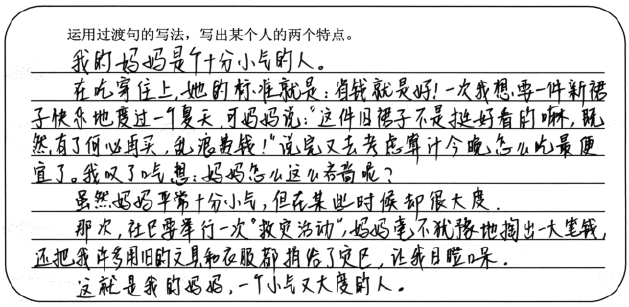 运用过渡句的写法，写出某个人的两个特点。
我的妈妈是个十分小气的人。
在吃穿住上，她的标准就是：省钱就是好！一次我想要一件新裙
子快乐地度过一个夏天，可妈妈说：“这件旧裙子不是挺好看的嘛，既
然有了何必再买，乱浪费钱！”说完又去考虑算计今晚怎么吃最便
宜了。我叹了口气想：妈妈怎么这么吝啬呢？
虽然妈妈平常十分小气，但在某些时候却很大度。
那次，社区要举行一次“救灾活动”，妈妈毫不犹豫地掏出一大笔钱，
还把我许多用旧的文具和衣服都捐给了灾区，让我目瞪口呆。
这就是我的妈妈，一个小气又大度的人。